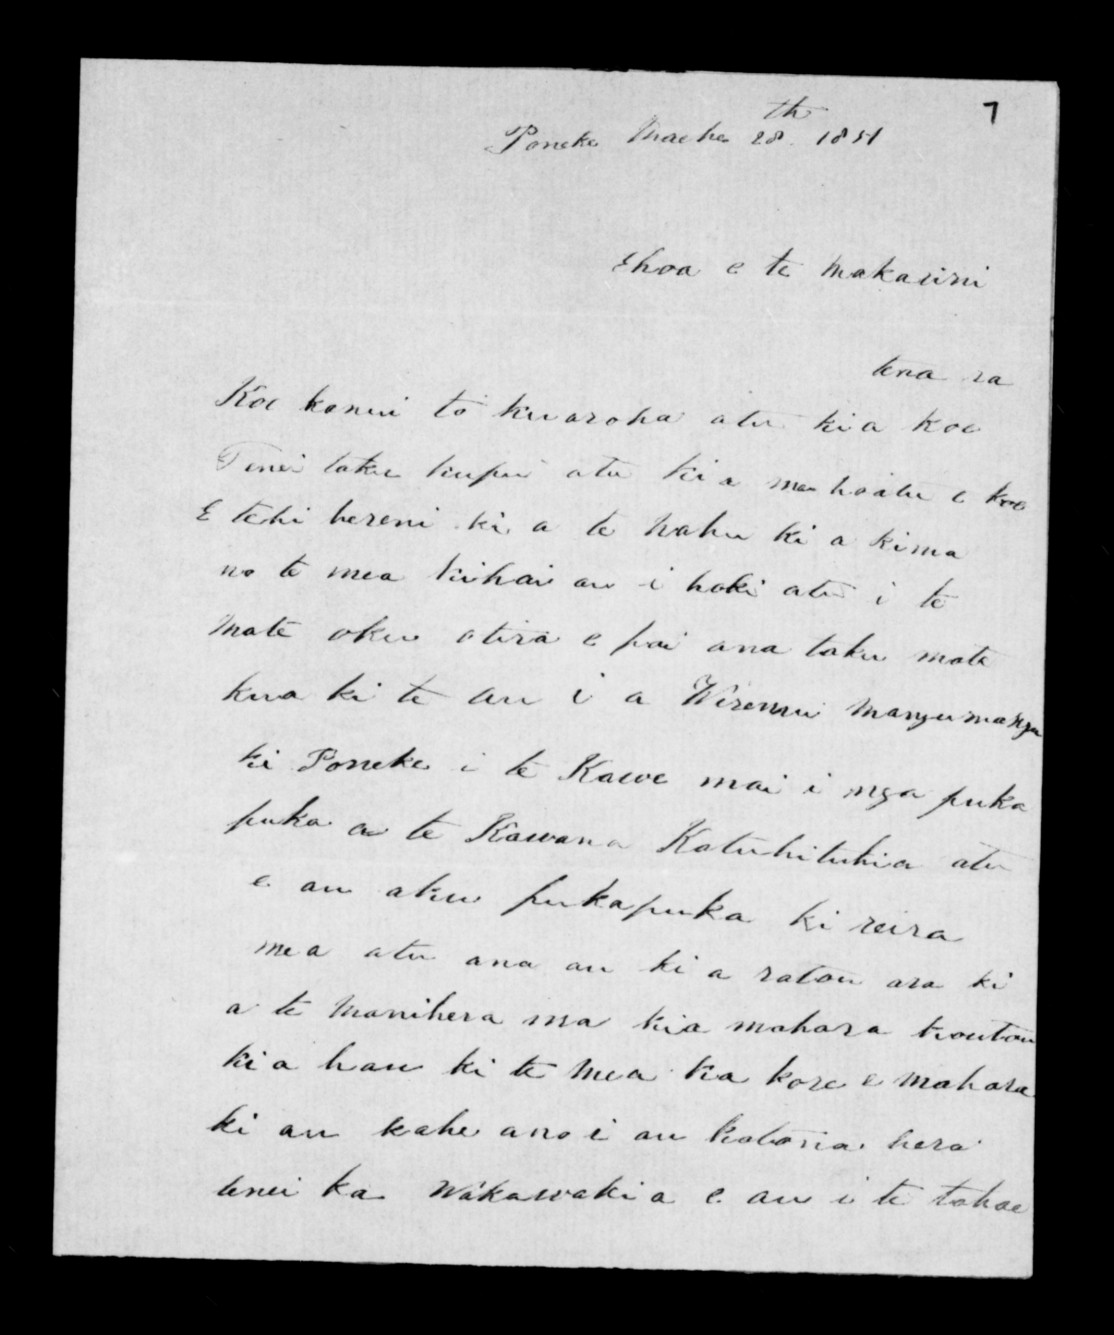 7
Poneke Maehe 28th 1851
Ehoa e te Makarini
tena ra
Koe kanui to kuaroha atu kia koe
Tenei taku kupu atu ki a mahoatu e koe
E tehi hereni ki a te hahu ki a kima
no te mea kiihai au i hoki atu i te
mate oku otira e pai ana taku mate
kua ki te au i a Wiremu mangumangu
ki Poneke i te Kawe mai i nga puka
puka a te Kawana Katuhituhia atu
e au aku pukapuka ki reira
mea atu ana au ki a ratou ara ki
a te Manihera ma kia mahara koutou
ki a hau ki te mea ka kore e mahara
ki au kahe ano i au katona hera
tenei ka Wakawakia e au i te tahae